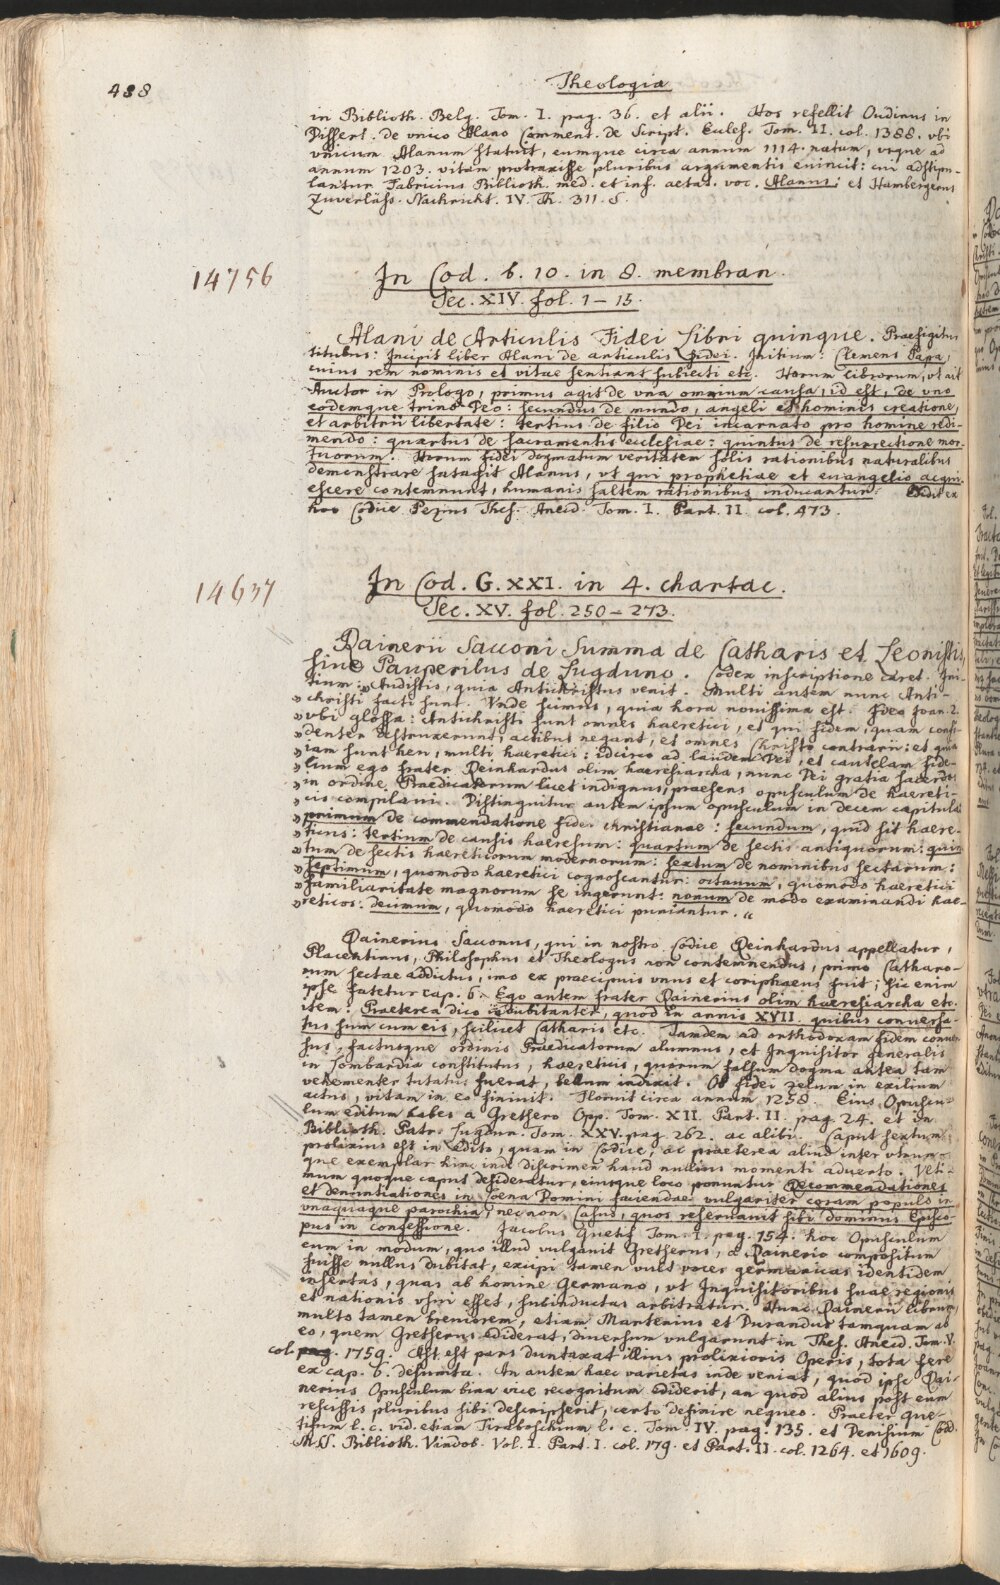 488
Theologia
in Biblioth. Belg. Tom. I. pag. 36. et alii. Hos refellit Oudinus in
Dissert. de unico Alano Comment. de Script. Eccles. Tom. II. col. 1388. vbi
vnicum Alanum statuit, eumque circa annum 1114. natum, vsque ad
annum 1203. vitam protraxisse pluribus argumentis euincit: cui adstipu-
lantur Fabricius Biblioth. med. et inf. aetat. voc. Alanus: et Hambergerus
Zuverläss. Nachricht. IV. Th. 311. S.
14756
In Cod. b. 10. in 8. membran.
Sec. XIV. fol. 1 – 15.
Alani de Articulis Fidei Libri quinque. Praefigitur
titulus: Incipit liber Alani de articulis fidei. Initium: Clemens Papa,
cuius rem nominis et vitae sentiant subiecti etc. Horum librorum, vt ait
Auctor in Prologo, primus agit de vna omnium causa, id est, de vno
eodemque trino Deo: secundus de mundo, angeli et hominis creatione,
et arbitrii libertate: tertius de filio Dei incarnato pro homine redi-
mendo: quartus de sacramentis ecclesiae: quintus de resurrectione mor-
tuorum. Horum fidei dogmatum veritatem solis rationibus naturalibus
demonstrare satagit Alanus, vt qui prophetiae et euangelio acqui-
escere contemnunt, humanis saltem rationibus inducantur. Edidit ex
hoc Codice Pezius Thes. Anecd. Tom. I. Part. II. col. 473.
14637
In Cod. G. XXI. in 4. chartac.
Sec. XV. fol. 250 – 273.
Rainerii Sacconi Summa de Catharis et Leonistis,
siue Pauperibus de Lugduno. Codex inscriptione caret. Ini-
tium: „Audistis, quia Antichristus venit. Multi autem nunc Anti-
„christi facti sunt. Vnde scimus, quia hora nouissima est. Ideo Joan. 2.
„vbi glossa: Antichristi sunt omnes haeretici, et qui fidem, quam confi-
„dentes destruxerunt, actibus negant, et omnes Christo contrarii: et quia
„iam sunt heu, multi haeretici: idcirco ad laudem Dei, et cautelam fide-
„lium ego frater Reinhardus olim haeresiarcha, nunc Dei gratia sacerdos
„in ordine Praedicatorum licet indignus, praesens opusculum de haereti-
„cis compilaui. Distinguitur autem ipsum opusculum in decem capitula
„primum de commendatione fidei christianae: secundum, quid sit haere-
„ticus: tertium de causis haeresum: quartum de sectis antiquorum: quin-
„tum de sectis haereticorum modernorum: sextum de nominibus sectarum:
„septimum, quomodo haeretici cognoscantur: octauum, quomodo haeretici
„familiaritate magnorum se ingerunt: nonum de modo examinandi hae-
„reticos: decimum, quomodo haeretici puniantur.“
Rainerius Sacconus, qui in nostro Codice Reinhardus appellatur,
Placentinus, Philosophus et Theologus non contemnendus, primo Catharo-
rum sectae addictus, imo ex praecipuis vnus et coriphaeus fuit; sic enim
ipse fatetur cap. 6. Ego autem frater Rainerius olim haeresiarcha etc.
item: Praeterea dico indubitanter, quod in annis XVII. quibus conuersa-
tus sum cum eis, scilicet Catharis etc. Tandem ad orthodoxam fidem conuer-
sus, factusque ordinis Praedicatorum alumnus, et Inquisitor generalis
in Lombardia constitutus, haereticis, quorum falsum dogma antea tam
vehementer tutatus fuerat, bellum indixit. Ob fidei zelum in exilium
actus, vitam in eo finiuit. Floruit circa annum 1258. Eius Opuscu-
lum editum habes a Gretsero Opp. Tom. XII. Part. II. pag. 24. et in
Biblioth. Patr. Lugdun. Tom. XXV. pag. 262. ac alibi. Caput sextum
prolixius est in edito, quam in Codice; ac praeterea aliud inter vtrum-
que exemplar hinc inde discrimen haud nullius momenti aduerto. Vlti-
mum quoque caput desideratur, eiusque loco ponuntur Recommendationes
et denuntiationes in Coena Domini faciendae vulgariter coram populo in
vnaquaque parochia, necnon Casus, quos reseruauit sibi dominus Episco-
pus in confessione. Jacobus Quetif Tom. I. pag. 154. hoc Opusculum
eum in modum, quo illud vulgauit Gretserus, a Rainerio compositum
fuisse nullus dubitat, excipi tamen vult voces germanicas identidem
insertas, quas ab homine Germano, vt Inquisitoribus suae regionis
et nationis vsui esset, subinductas arbitratur. Hunc Rainerii librum
multo tamen breuiorem, etiam Martenius et Durandus tamquam ab
eo, quem Gretserus ediderat, diuersum vulgarunt in Thes. Anecd. Tom. V.
col. pag. 1759. Ast est pars duntaxat illius prolixioris Operis, tota fere
ex cap. 6. desumta. An autem haec varietas inde veniat, quod ipse Rai-
nerius Opusculum bina vice recognitum ediderit, an quod alius post eum
rescissis pluribus sibi descripserit, certo definire nequeo. Praeter Que-
tifum l. c. vid. etiam Tiraboschium l. c. Tom. IV. pag. 135. et Denisium Codd.
MSS. Biblioth. Vindob. Vol. I. Part. I. col. 179. et Part. II. col. 1264. et 1609.